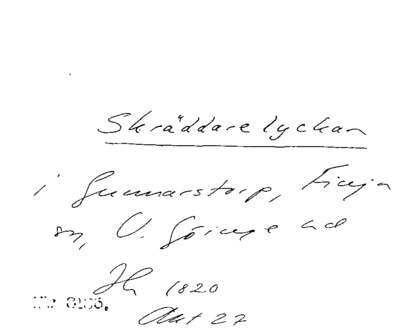 Skräddarelyckan
i Gunnarstorp, Finja
sn, V. Göinge hd
1820
Akt 27